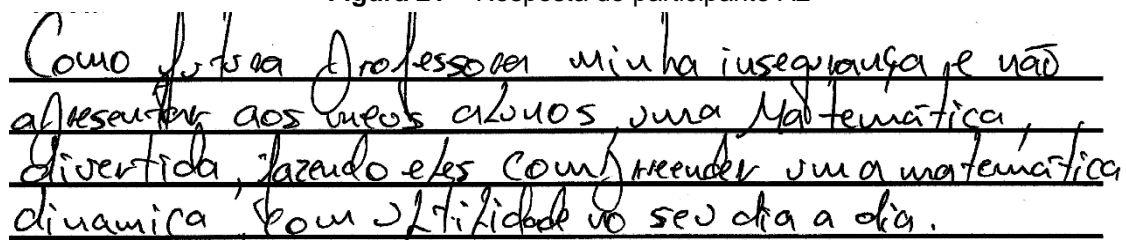 Como futura professora minha insegurança e não
apresentar aos meus alunos uma Matemática,
divertida, fazendo eles compreender uma matemática
dinamica com ultilidade no seu dia a dia.